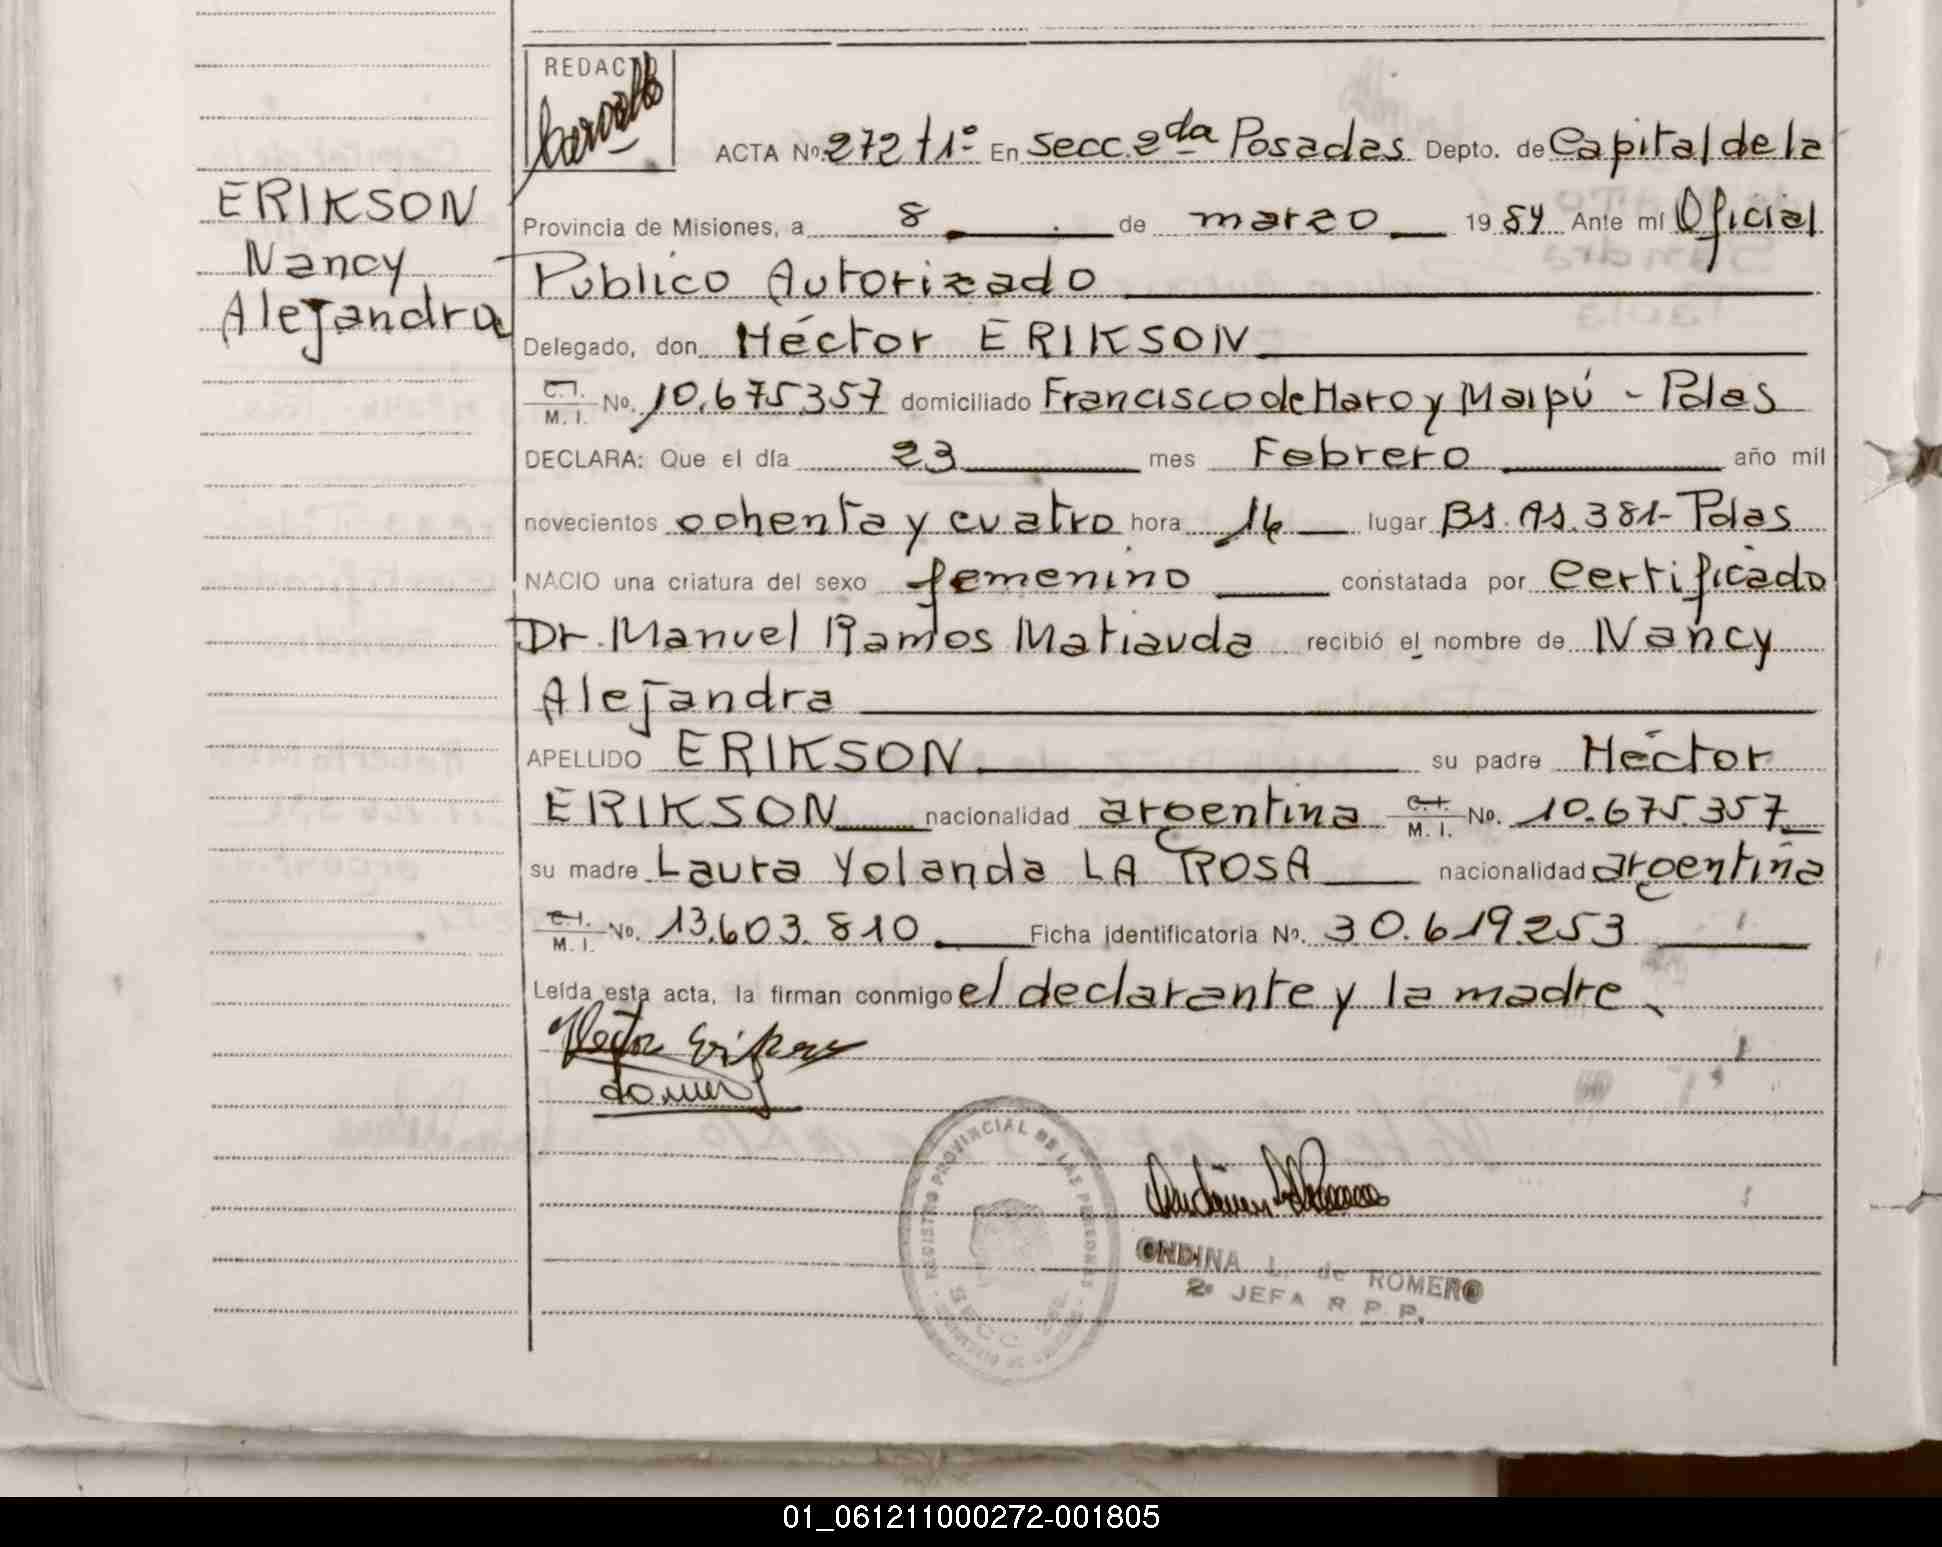 REDACTÓ
ERIKSON
Nancy
Alejandra
ACTA No. 272 t1º En secc. 2da Posadas Depto. de Capital de la
Provincia de Misiones, a 8 de marzo 1984 Ante mí Oficial
Público Autorizado
Delegado, don Héctor ERIKSON
C.I. M.I. No. 10.675.357 domiciliado Francisco de Haro y Maipú - Pdas
DECLARA: Que el día 23 mes Febrero año mil
novecientos ochenta y cuatro hora 16 lugar Bs. As. 381- Pdas
NACIO una criatura del sexo femenino constatada por certificado
Dr. Manuel Ramos Matiauda recibió el nombre de Nancy
Alejandra
APELLIDO ERIKSON su padre Héctor
ERIKSON nacionalidad argentina C.I. M.I. No. 10.675.357
su madre Laura Yolanda LA ROSA nacionalidad argentina
C.I. M.I. No. 13.603.810 Ficha identificatoria No. 30.619.253
Leída esta acta, la firman conmigo el declarante y la madre.
Hector Erikson
REGISTRO PROVINCIAL DE LAS PERSONAS
SECC. 2da
ONDINA L. de ROMERO
2º JEFA R. P. P.
01_061211000272-001805